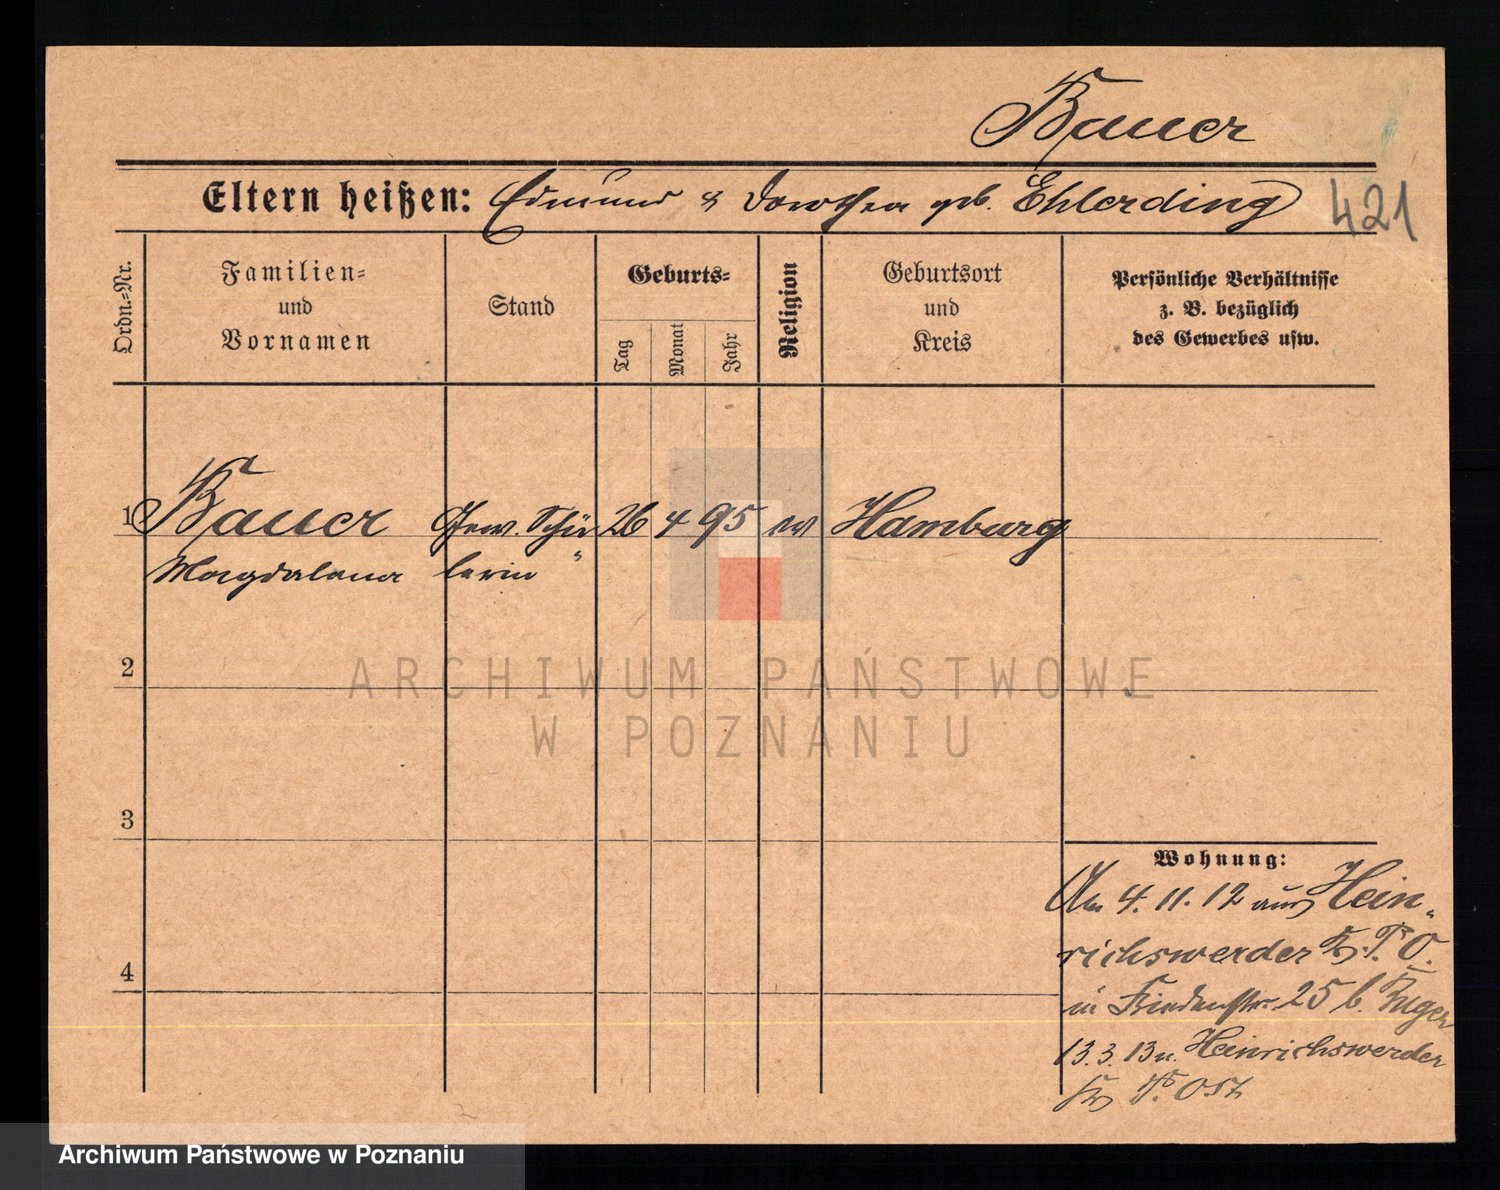 Bauer
Eltern heißen: Edmund & Dorothea geb. Ehlerding
421
Ordn.-Nr.
Familien-
und
Vornamen
Stand
Geburts-
Tag
Monat
Jahr
Religion
Geburtsort
und
Kreis
Persönliche Verhältnisse
z. B. bezüglich
des Gewerbes usw.
1 Bauer Gew. Schü 26 4 95 ev Hamburg
Magdalena lerin
2
ARCHIWUM PAŃSTWOWE
W POZNANIU
3
Wohnung:
4. 11. 12 aus Hein-
richswerder P. O.
4
in Friedenstr. 25 b. Kuger
13. 3. 13 n. Heinrichswerder
P. Ost
Archiwum Państwowe w Poznaniu